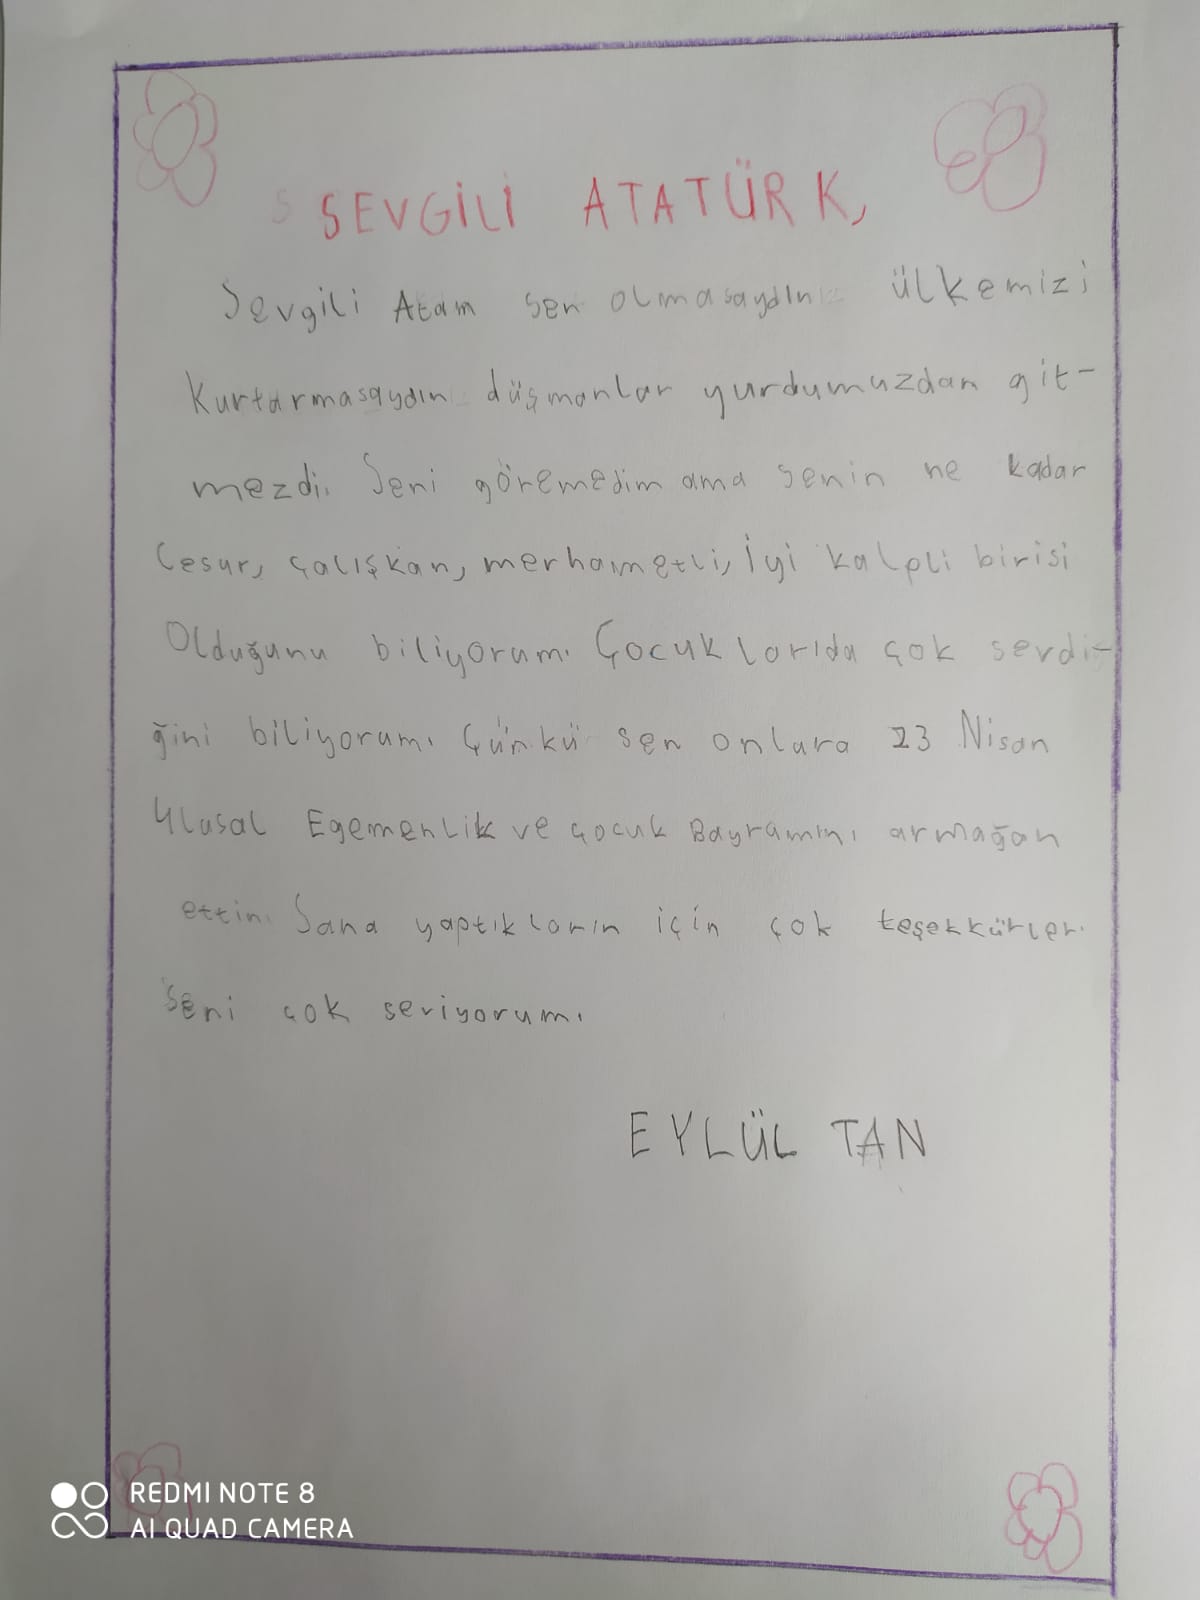 SEVGİLİ ATATÜRK,
Sevgili Atam sen olmasaydın ülkemizi
Kurtarmasaydın düşmanlar yurdumuzdan git-
mezdi. Seni göremedim ama senin ne kadar
Cesur, çalışkan, merhametli, İyi kalpli birisi
Olduğunu biliyorum. Çocuklarıda çok sevdi-
ğini biliyorum. Çünkü sen onlara 23 Nisan
Ulusal Egemenlik ve çocuk Bayramını armağan
ettin. Sana yaptıkların için çok teşekkürler.
Seni çok seviyorum.
EYLÜL TAN
REDMI NOTE 8
AI QUAD CAMERA